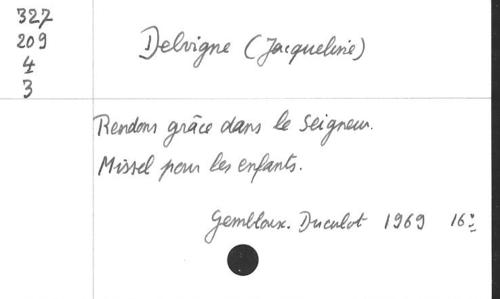 327
209
4
3
Delvigne (Jacqueline)
Rendons grâce dans le Seigneur.
Missel pour les enfants.
Gembloux. Duculot 1969 16º